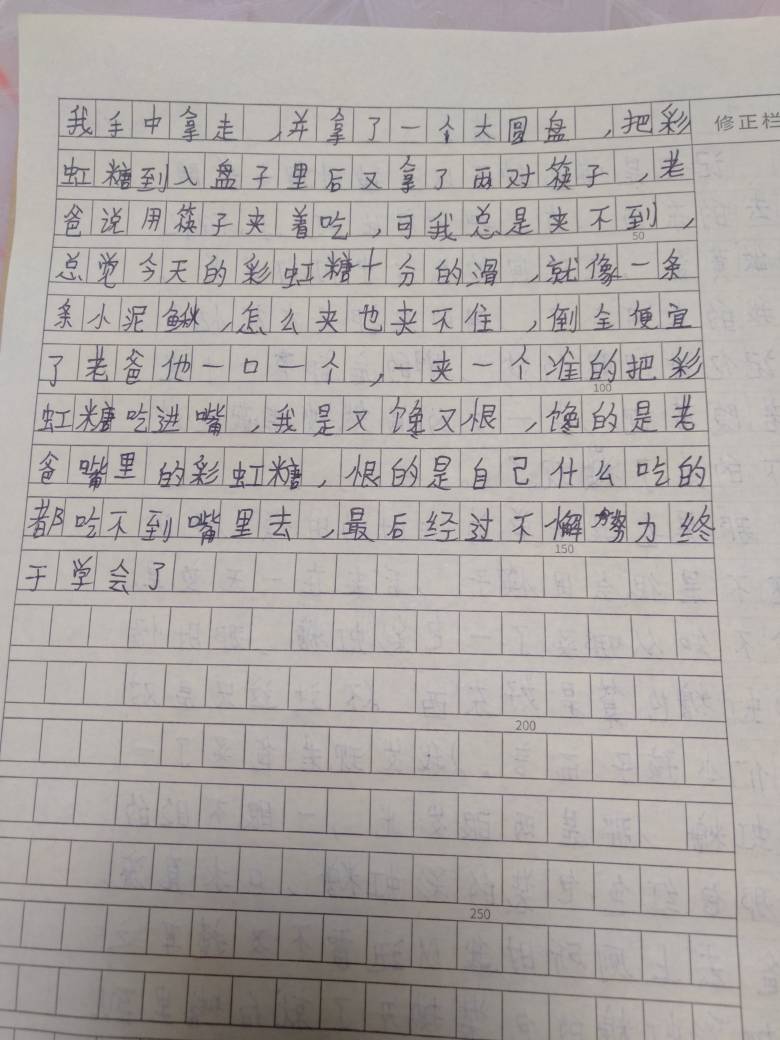 我手中拿走,并拿了一个大圆盘,把彩
修正栏
虹糖到入盘子里后又拿了两对筷子,老
爸说用筷子夹着吃,可我总是夹不到,
50
总觉今天的彩虹糖十分的滑,就像一条
条小泥鳅,怎么夹也夹不住,倒全便宜
了老爸他一口一个,一夹一个准的把彩
100
虹糖吃进嘴,我是又馋又恨,馋的是老
爸嘴里的彩虹糖,恨的是自己什么吃的
都吃不到嘴里去,最后经过不懈努力终
150
于学会了
200
250